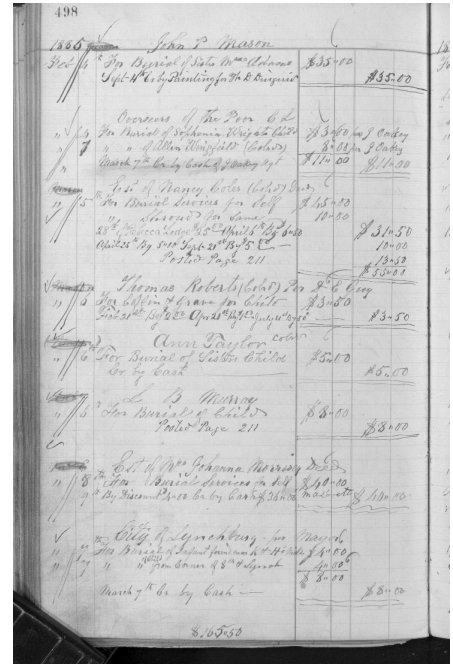 498
1885 John P Mason
Feb 4th For Burial of Sister Mrs Adams $35.00
Sept 14th Cr by Painting for Wm D Diuguid $35.00
Overseers of the Poor C L
" 4 For Burial of Sophonia Wright's Child $3.00 per J Oakey
" 7 " " of Allen Wingfield (Cold) 8.00 per J Oakey
March 7th Cr by Cash J Oakey Agt $11.00 $11.00
Est of Nancy Coles (Cold) Decd
" 5th For Burial Services for Self $45.00
" for Same 10.00
28th By Lodge $25 April 5th By 6.50 $31.50
April 25th By 5.00 Sept 21st By $5 10.00
Posted Page 211 13.50
$55.00
Thomas Roberts (Cold) Per D E Guy
" 5 For Coffin & Grave for Child $3.50
Feb 21st By Apr 20th By July 21st By 50 $3.50
Ann Taylor cold
" 6th For Burial of Sisters Child $5.00
Cr by Cash $5.00
L B Murray
" 6 For Burial of Child $8.00
Posted Page 211 $8.00
Est of Mrs Johanna Morrissy Decd
" 8th For Burial Services for Self $40.00
" 9th By Discount 4.00 Cr by Cash $36.00 $40.00
City of Lynchburg per Mayor
" For Burial of Infant from $4.00
" " from Corner of 8th & Lynch 4.00
$8.00
March 7th Cr by Cash $8.00
$165.50